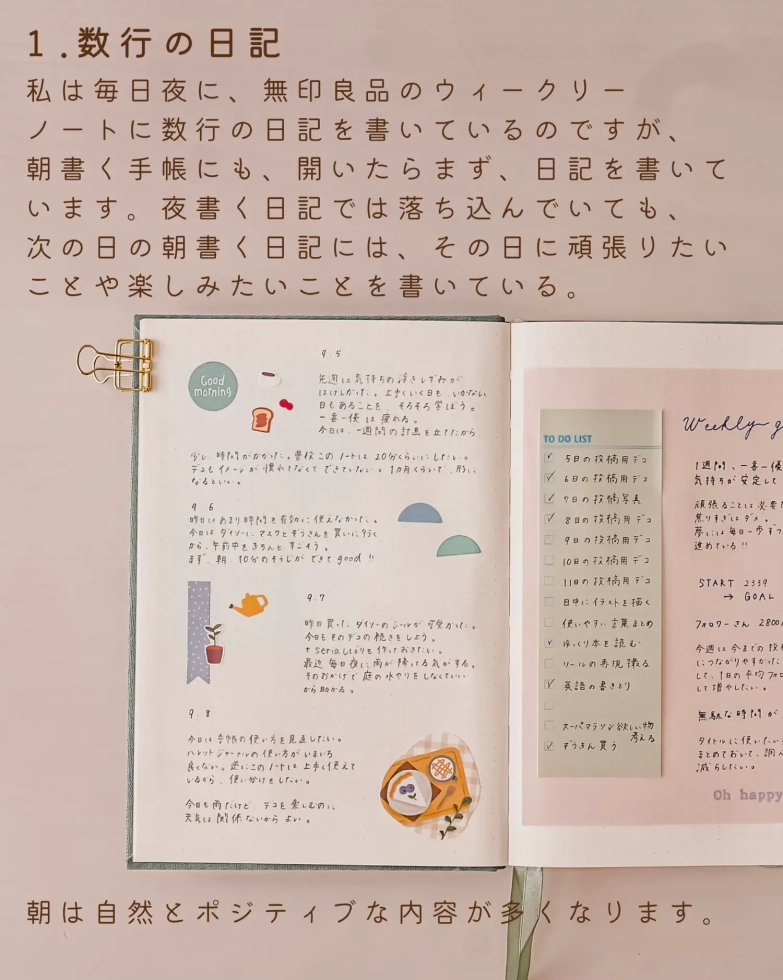 1.数行の日記
私は毎日夜に、無印良品のウィークリー
ノートに数行の日記を書いているのですが、
朝書く手帳にも、開いたらまず、日記を書いて
います。夜書く日記では落ち込んでいても、
次の日の朝書く日記には、その日に頑張りたい
ことや楽しみたいことを書いている。
9.5
Good
morning
先週は気持ちの浮きしずみが
はげしかった。上手くいく日も、いかない
日もあることを、そろそろ学ぼう。
一喜一憂は疲れる。
今日は、一週間の計画を立てたから
少し、時間がかかった。普段このノートは20分くらいにしたい。
デコもイメージが慣れてなくてできていない。1カ月くらいで、形に
なるといい。
9.6
昨日はあまり時間を有効に使えなかった。
今日はダイソーにマスクとぞうきんを買いに行く
から、午前中をきちんとすごそう。
まず、朝、10分のそうじができてgood!!
9.7
昨日買った、ダイソーのシールが可愛かった。
今日もそのデコの続きをしよう。
+ seriaしおりも作っておきたい。
最近毎日夜に雨が降ってる気がする。
そのおかげで庭の水やりをしなくていい
から助かる。
9.8
今日は手帳の使い方を見直したい。
バレットジャーナルの使い方がいまいち
良くない。逆にこのノートは上手く使えて
いるから、使い分けをしたい。
今日も雨だけど、デコを楽しむのに、
天気は関係ないからよい。
TO DO LIST
5日の投稿用デコ
6日の投稿用デコ
7日の投稿写真
8日の投稿用デコ
9日の投稿用デコ
10日の投稿用デコ
11日の投稿用デコ
日中にイラストを描く
使いやすい言葉まとめ
ゆっくり本を読む
リールの再現撮る
英語の書きとり
スーパーマラソン欲しい物
考える
ぞうきん買う
Weekly g
1週間、一喜一憂
気持ちが安定して
頑張ることは必要だ
焦りすぎはダメ。
夢には毎日一歩ずつ
進めている!!
START 2339
→ GOAL
フォロワーさん 2800
今週は今までの投稿
につながりやすかった
して、1日の平均フォロ
して増やしたい。
無駄な時間が
タイトルに使いたい
まとめておいて、調
減らしたい。
Oh happy
朝は自然とポジティブな内容が多くなります。